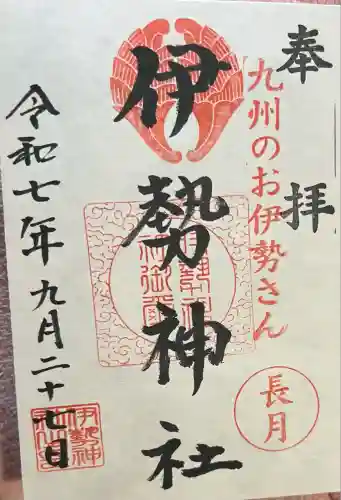 奉拝
九州のお伊勢さん
長月
伊勢神社
令和七年九月二十七日